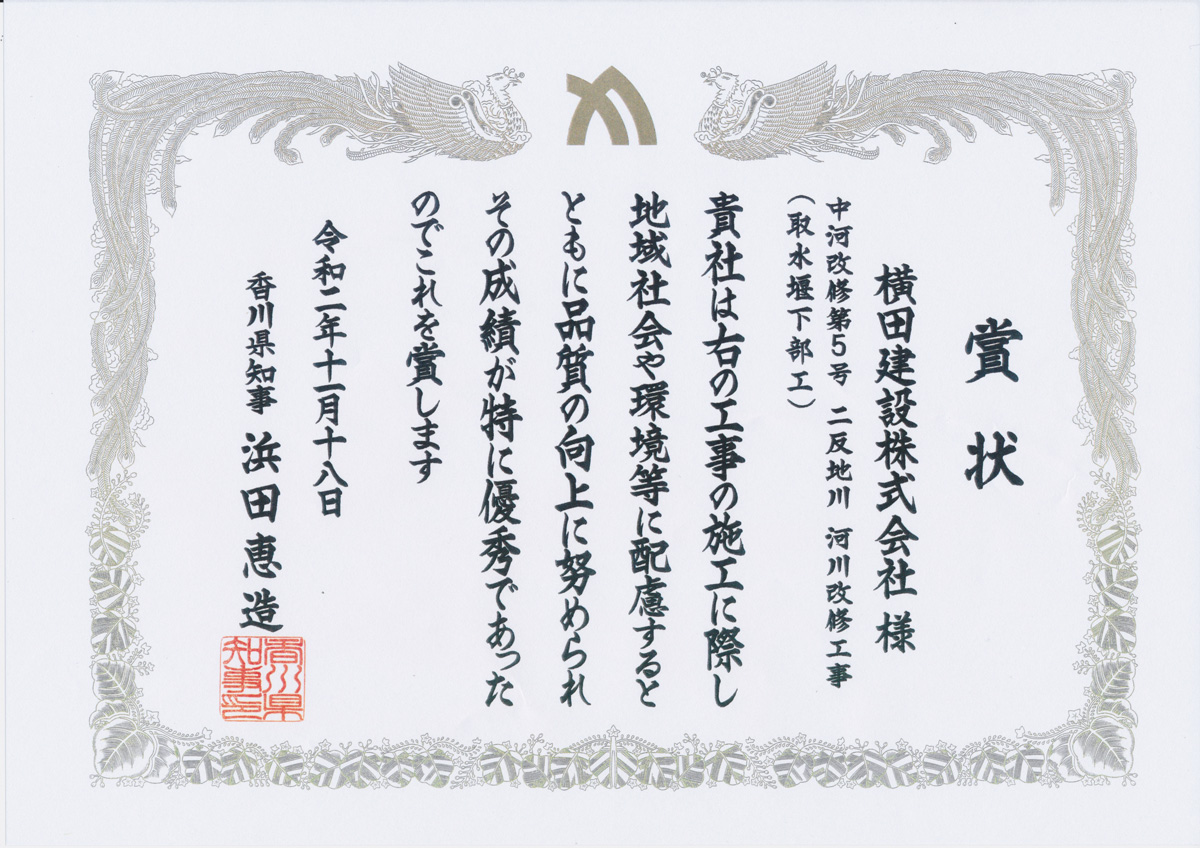 賞状
横田建設株式会社 様
中河改修第5号 二反地川 河川改修工事
（取水堰下部工）
貴社は右の工事の施工に際し
地域社会や環境等に配慮すると
ともに品質の向上に努められ
その成績が特に優秀であった
のでこれを賞します
令和二年十一月十八日
香川県知事 浜田恵造
香川県
知事印